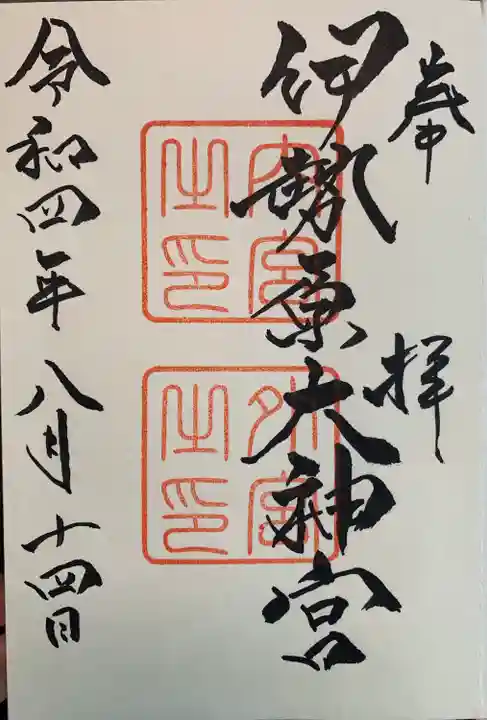 奉拝
伊勢原大神宮
内宮之印
外宮之印
令和四年八月十四日